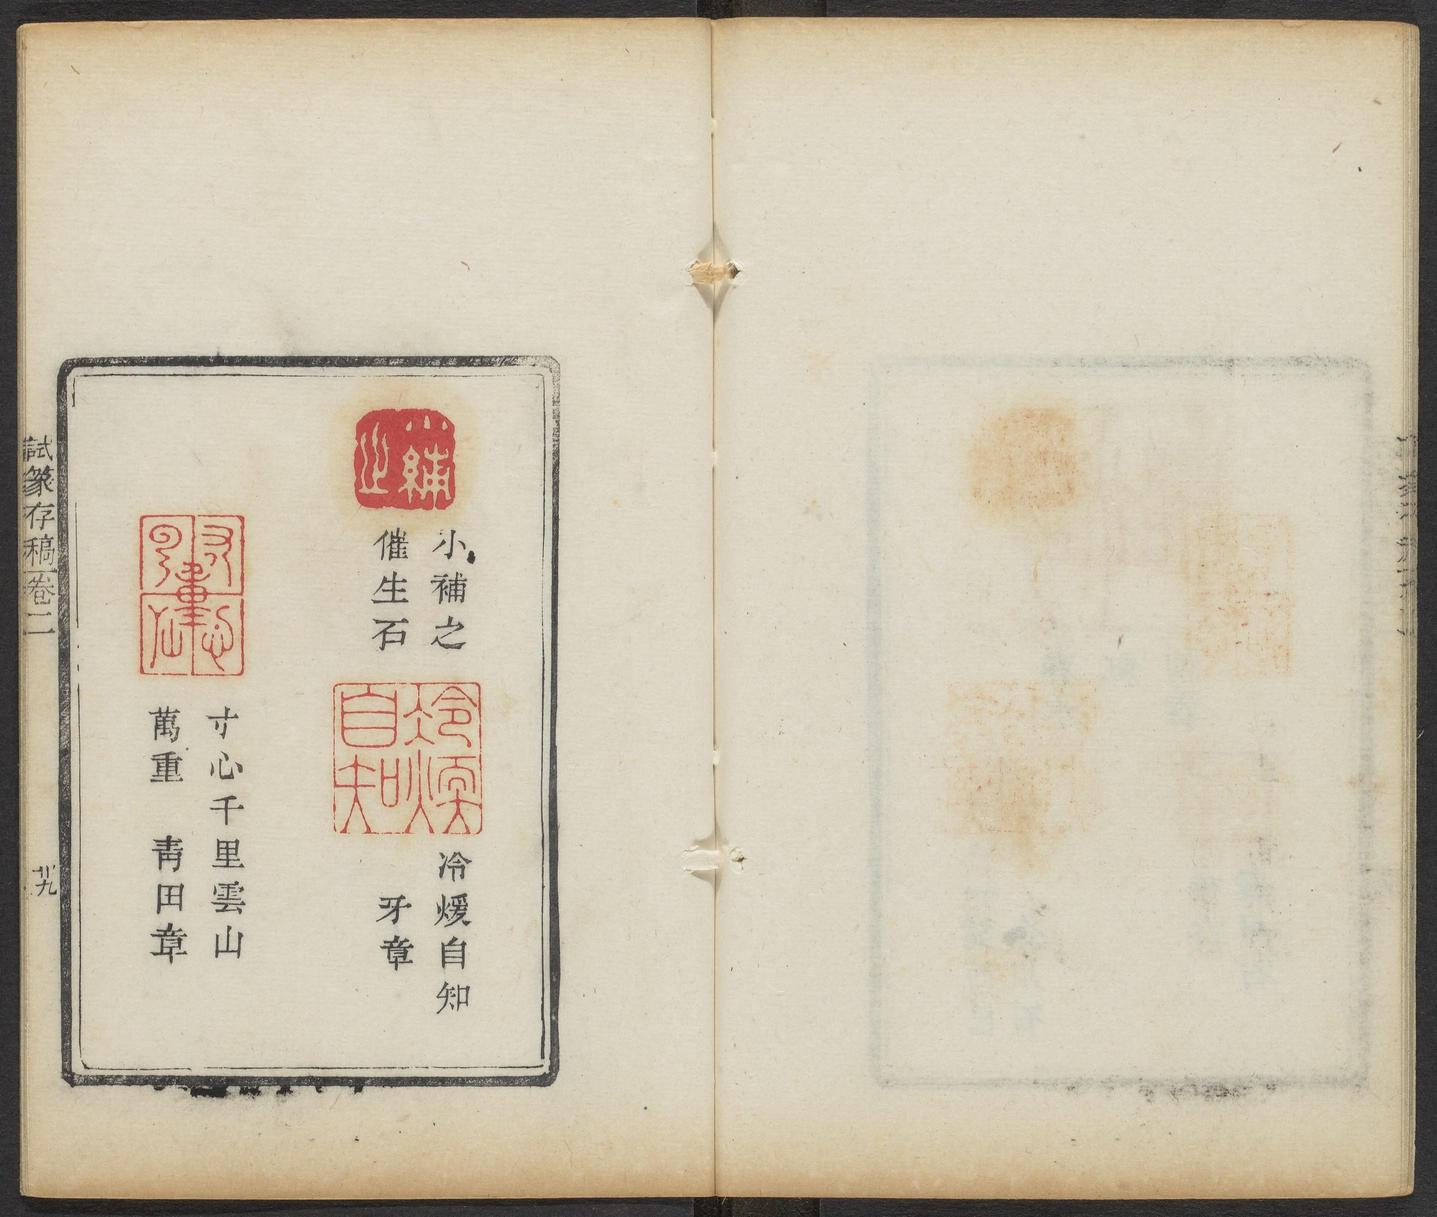 小補之
催生石
冷煖自知
牙章
寸心千里雲山
萬重 靑田章
試篆存稿 卷二
廿九